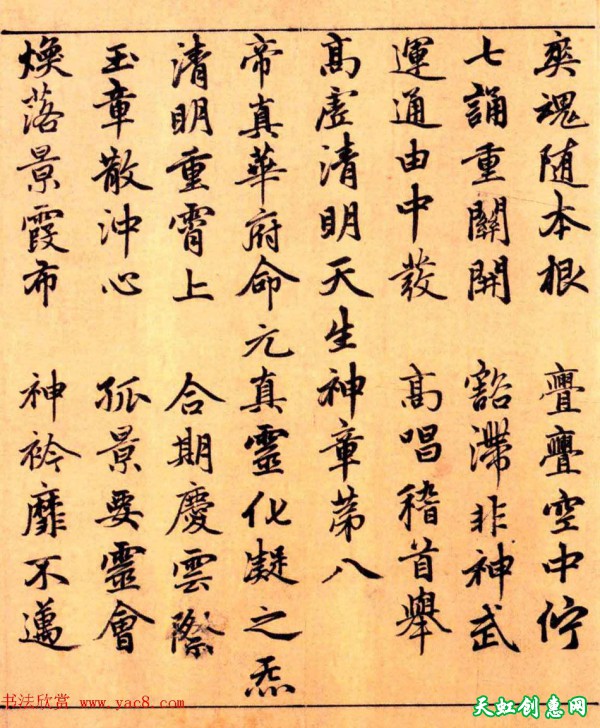 奕魂随本根　亹亹空中佇
七誦重關開　豁滯非神武
運通由中發　高唱稽首舉
高虛清明天生神章第八
帝真華府命元真靈化凝之炁
清明重霄上　合期慶雲際
玉章散沖心　孤景要靈會
煥落景霞布　神衿靡不邁
书法欣赏 www.yac8.com
天虹创惠网